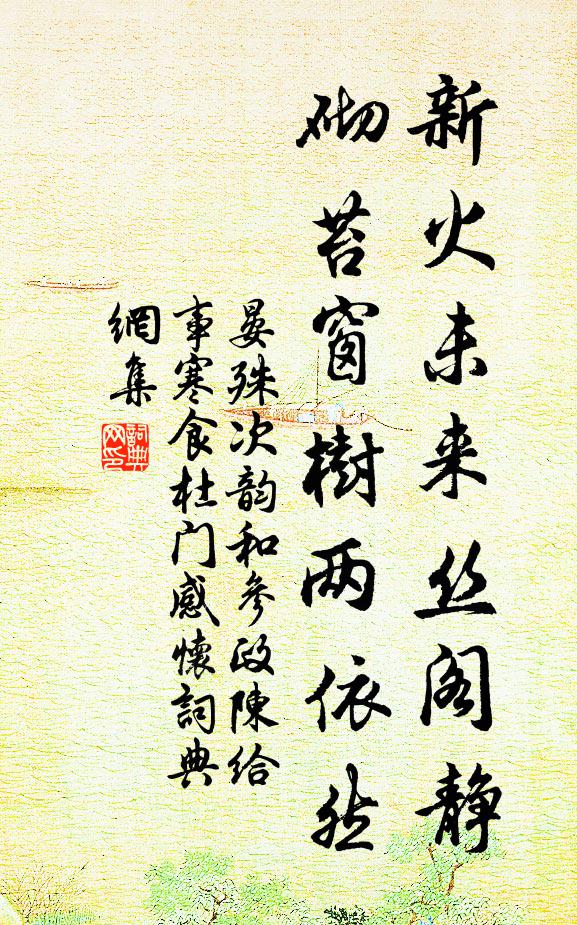 新火未来丝阁静
砌苔窗樹两依然
晏殊次韵和参政陳给
事寒食杜门感懷詞典
網集
詞典
网印